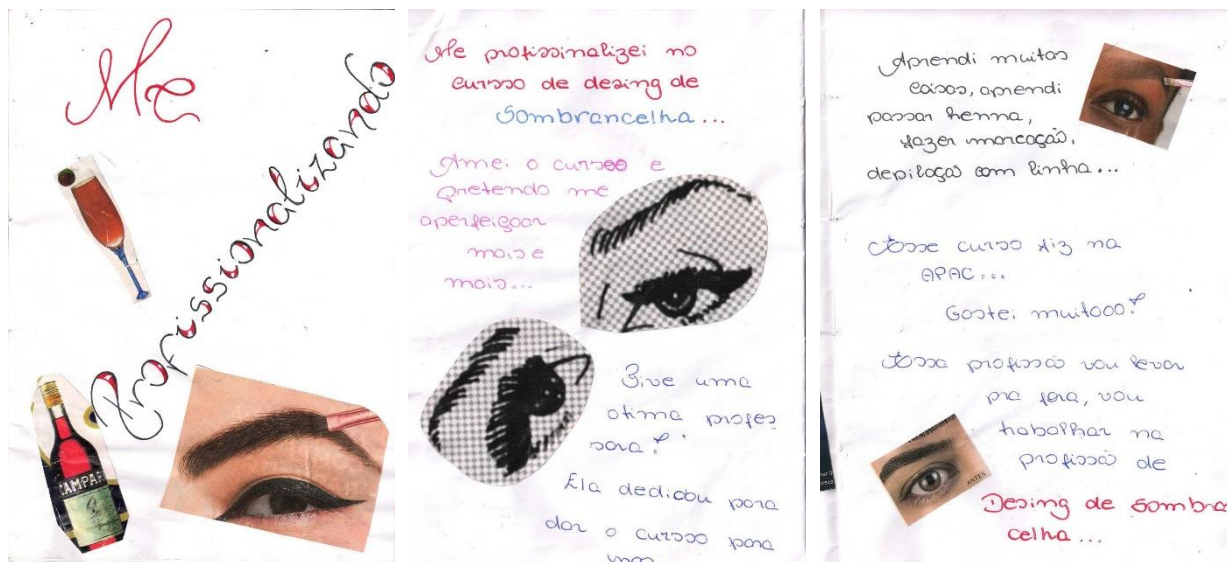 Me
Profissionalizando
CAMPARI
Me profissinalizei no
cursso de desing de
Sombrancelha...
Amei o cursoo e
pretendo me
aperfeiçoar
mais e
mais...
Tive uma
otima profes
sora!
Ela dedicou para
dar o cursso para
nos
Aprendi muitas
coisas, aprendi
passar henna,
fazer marcação,
depilação com linha...
Esse curso fiz na
APAC...
Gostei muitooo!
Essa profissão vou levar
pra fora, vou
trabalhar na
profissão de
ANTES
Desing de sombra
celha...